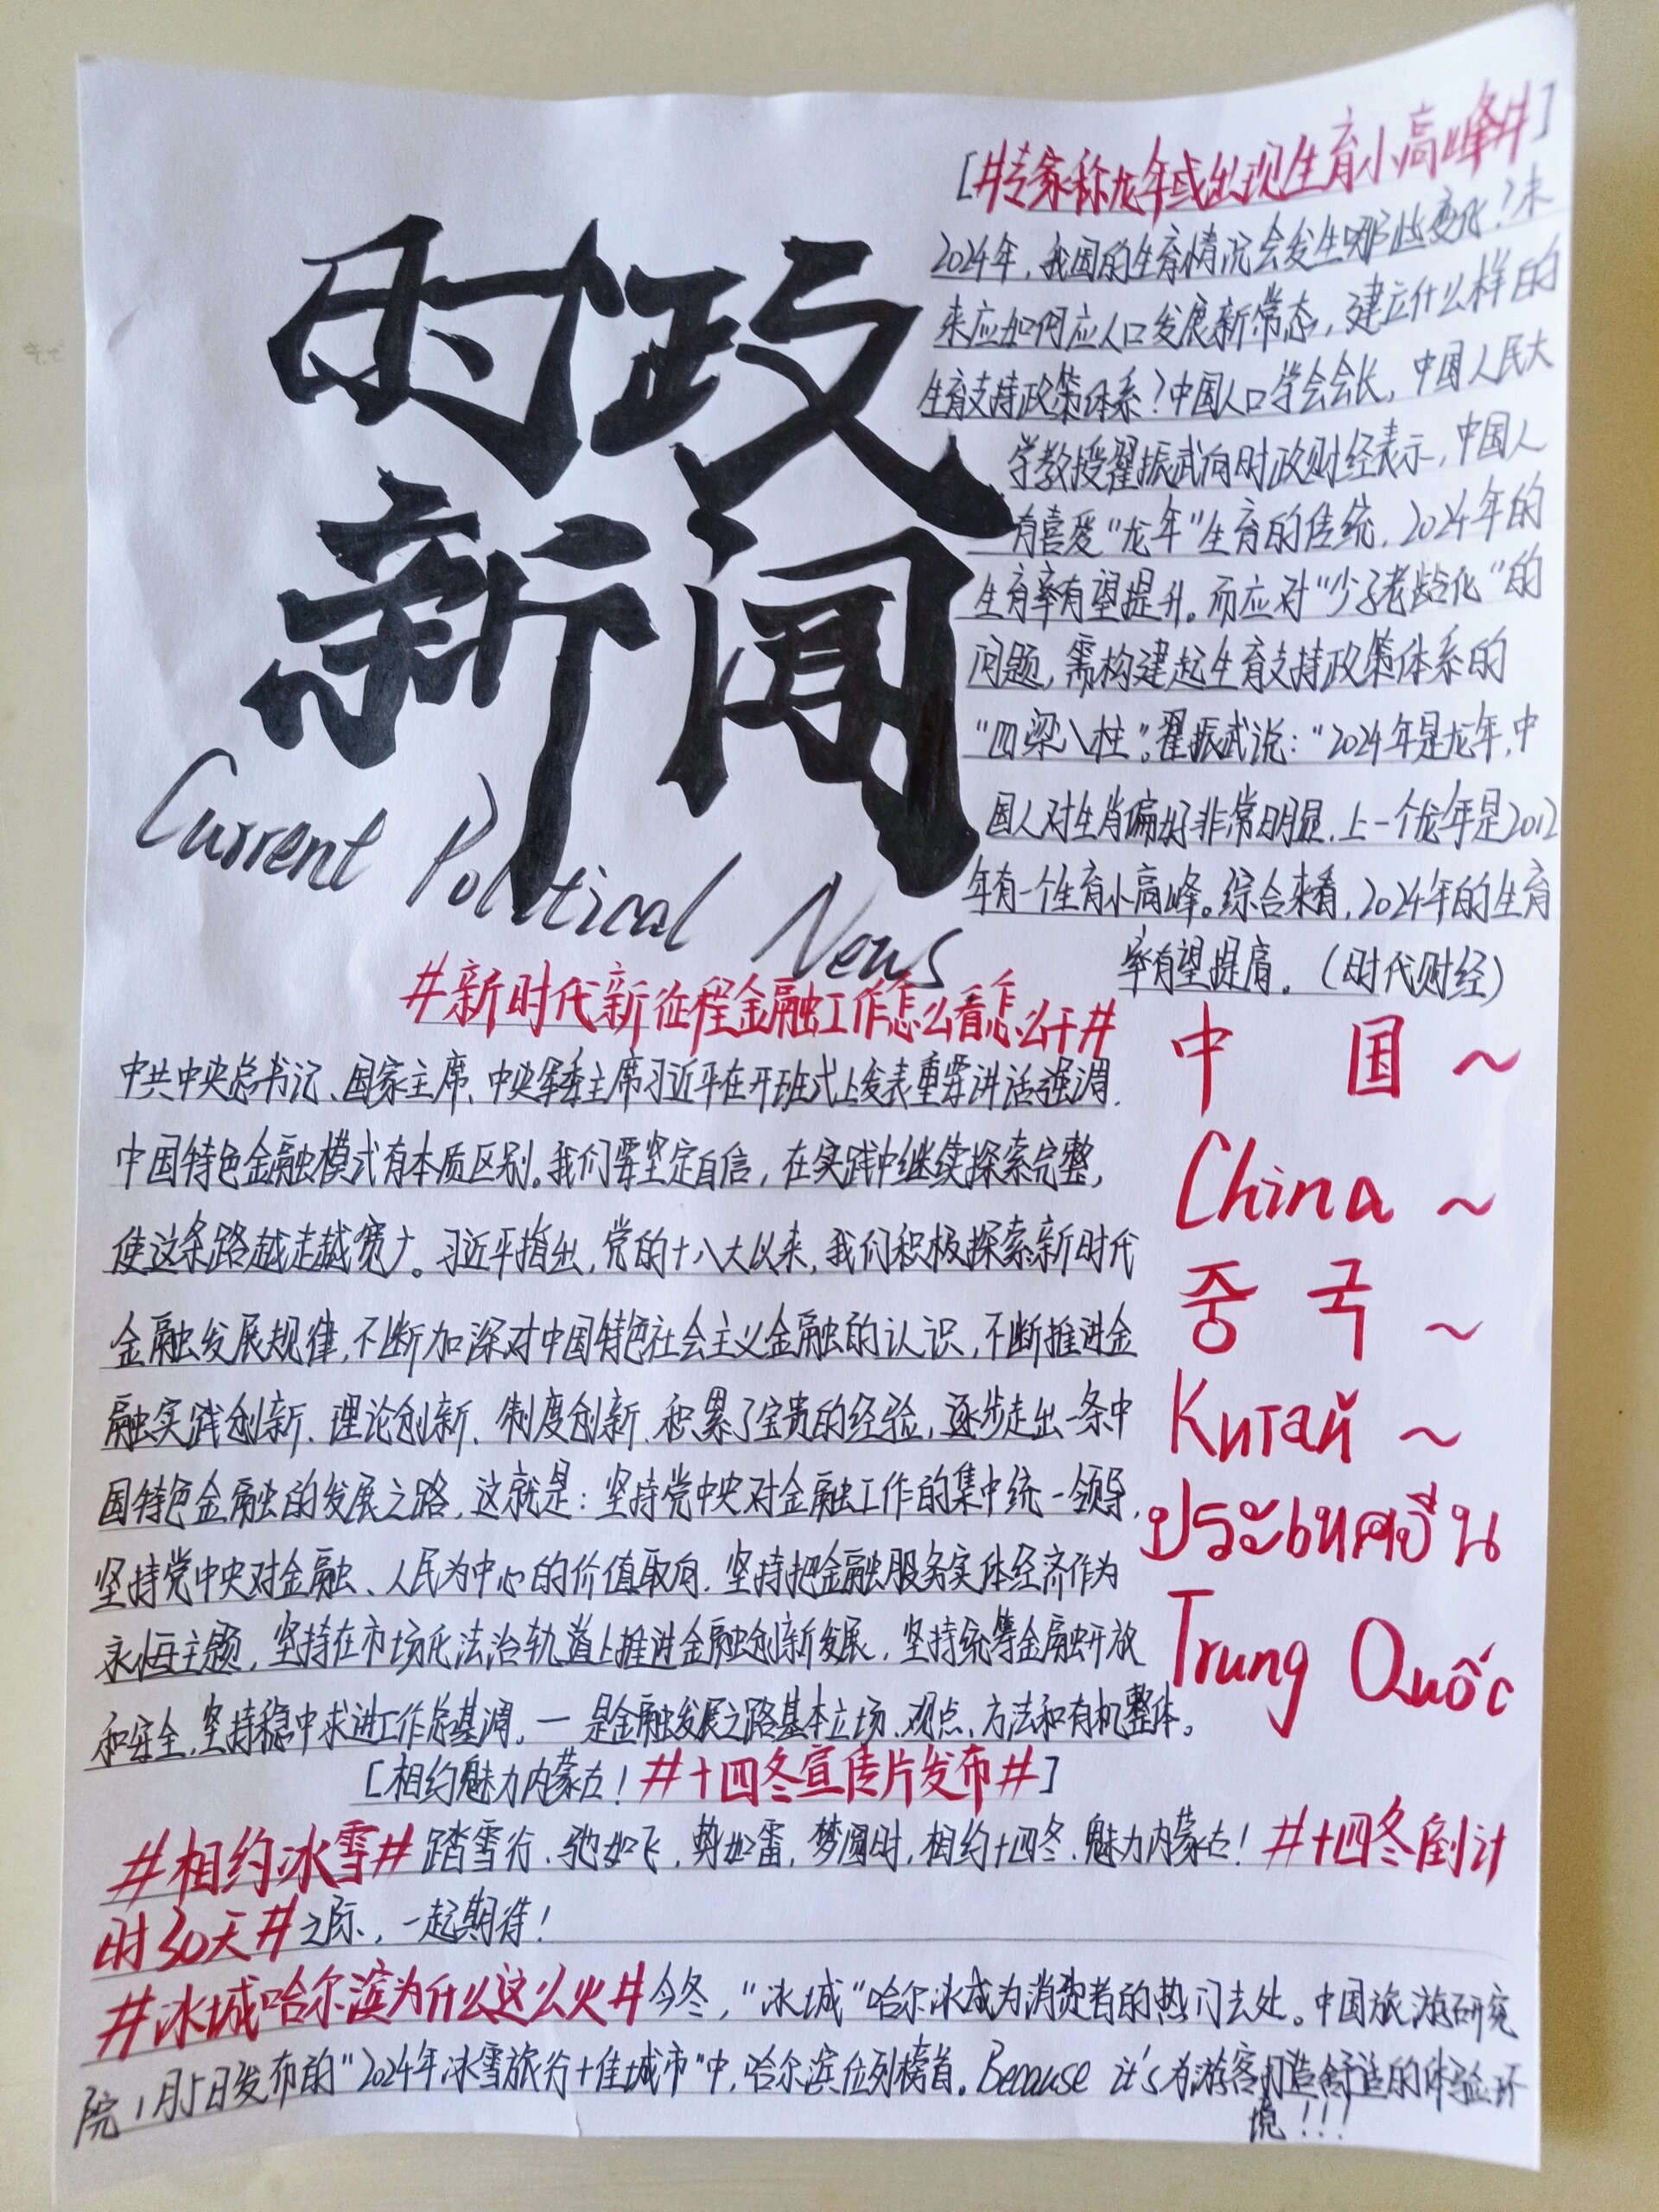 时政
新闻
Current Political News
[#专家称龙年或出现生育小高峰#]
2024年，我国的生育情况会发生哪些变化？未
来应如何应人口发展新常态，建立什么样的
生育支持政策体系？中国人口学会会长，中国人民大
学教授翟振武向时政财经表示，中国人
有喜爱"龙年"生育的传统，2024年的
生育率有望提升。而应对"少子老龄化"的
问题，需构建起生育支持政策体系的
"四梁八柱"。翟振武说："2024年是龙年，中
国人对生肖偏好非常明显，上一个龙年是2012
年有一个生育小高峰。综合来看，2024年的生育
率有望提高。(时代财经)
#新时代新征程金融工作怎么看怎么干#
中共中央总书记、国家主席、中央军委主席习近平在开班式上发表重要讲话强调，
中国特色金融模式有本质区别。我们要坚定自信，在实践中继续探索完整，
使这条路越走越宽大。习近平指出，党的十八大以来，我们积极探索新时代
金融发展规律，不断加深对中国特色社会主义金融的认识，不断推进金
融实践创新、理论创新、制度创新，积累了宝贵的经验，逐步走出一条中
国特色金融的发展之路，这就是：坚持党中央对金融工作的集中统一领导，
坚持党中央对金融、人民为中心的价值取向，坚持把金融服务实体经济作为
永恒主题，坚持在市场化法治轨道上推进金融创新发展，坚持统筹金融开放
和安全，坚持稳中求进工作总基调，一是金融发展之路基本立场、观点、方法和有机整体。
中 国 ~
China ~
중 국 ~
Китай ~
ประเทศจีน
Trung Quốc
[相约魅力内蒙古！#十四冬宣传片发布#]
#相约冰雪#踏雪行，驰如飞，势如雷，梦圆时，相约十四冬，魅力内蒙古！#十四冬倒计
时30天#之际，一起期待！
#冰城哈尔滨为什么这么火#今冬，"冰城"哈尔冰成为消费者的热门去处。中国旅游研究
院1月5日发布的"2024年冰雪旅行十佳城市"中，哈尔滨位列榜首。Because it's为游客打造舒适的体验环
境！！！